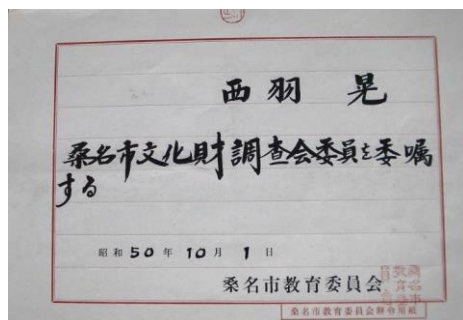 西羽 晃
桑名市文化財調査会委員を委嘱
する
昭和 50 年 10 月 1 日
桑名市教育委員会
桑名市教育委員会辞令用紙